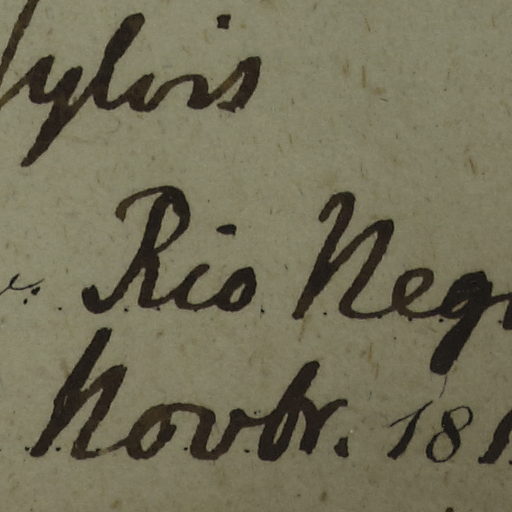 Sylvis
Rio Neg
Novbr. 18